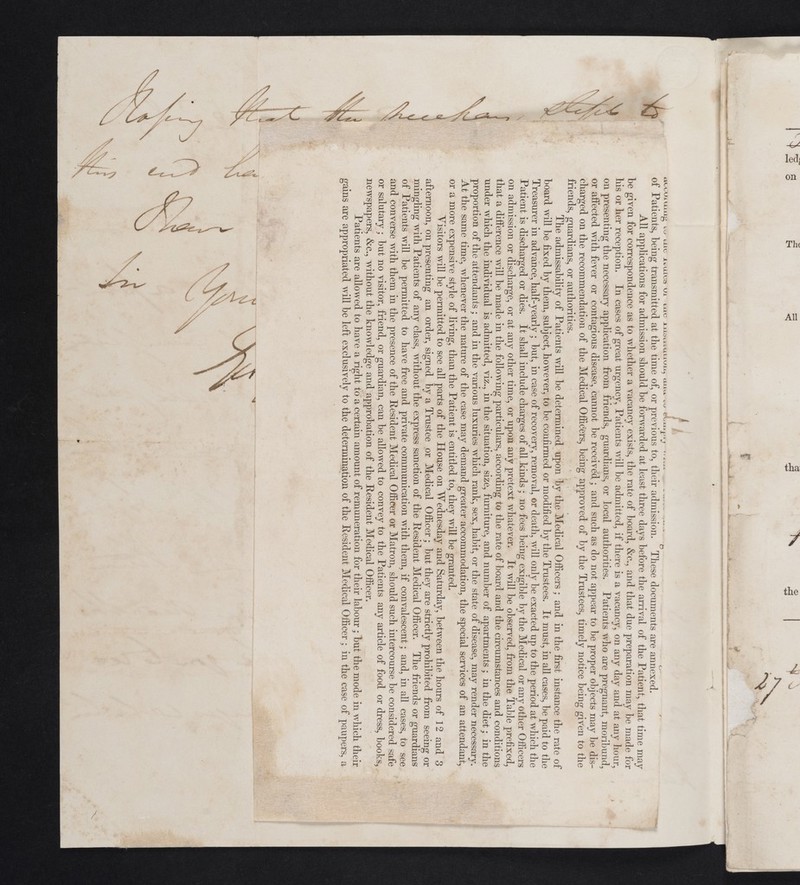 Hoping that the
this and
I have
Sir Your
of Patients, being transmitted at the time of, or previous to, their admission. These documents are annexed.
All applications for admission should be forwarded at least three days before the arrival of the Patient, that time may
be given for correspondence as to whether a vacancy exists, the rate of board, &c., and that due preparation may be made for
his or her reception. In cases of great urgency, Patients will be admitted, if there is a vacancy, on any day and at any hour,
on presenting the necessary application from friends, guardians, or local authorities. Patients who are pregnant, moribund,
or affected with fever or contagious disease, cannot be received; and such as do not appear to be proper objects may be dis-
charged on the recommendation of the Medical Officers, being approved of by the Trustees, timely notice being given to the
friends, guardians, or authorities.
The admissibility of Patients will be determined upon by the Medical Officers; and in the first instance the rate of
board will be fixed by them, subject, however, to be confirmed or modified by the Trustees. It must, in all cases, be paid to the
Treasurer in advance, half-yearly; but, in case of recovery, removal, or death, will only be exacted up to the period at which the
Patient is discharged or dies. It shall include charges of all kinds; no fees being exigible by the Medical or any other Officers
on admission or discharge, or at any other time, or upon any pretext whatever. It will be observed, from the Table prefixed,
that a difference will be made in the following particulars, according to the rate of board and the circumstances and conditions
under which the individual is admitted, viz., in the situation, size, furniture, and number of apartments; in the diet; in the
proportion of the attendants; and in the various luxuries which rank, sex, habit, or the state of disease, may render necessary.
At the same time, whenever the nature of the case may demand greater accommodation, the special services of an attendant,
or a more expensive style of living, than the Patient is entitled to, they will be granted.
Visitors will be permitted to see all parts of the House on Wednesday and Saturday, between the hours of 12 and 3
afternoon, on presenting an order, signed by a Trustee or Medical Officer; but they are strictly prohibited from seeing or
mingling with Patients of any class, without the express sanction of the Resident Medical Officer. The friends or guardians
of Patients will be permitted to have free and private communication with them, if convalescent; and, in all cases, to see
and converse with them in the presence of the Resident Medical Officer or Matron, should such intercourse be considered safe
or salutary; but no visitor, friend, or guardian, can be allowed to convey to the Patients any article of food or dress, books,
newspapers, &c., without the knowledge and approbation of the Resident Medical Officer.
Patients are allowed to have a right to a certain amount of remuneration for their labour; but the mode in which their
gains are appropriated will be left exclusively to the determination of the Resident Medical Officer; in the case of paupers, a
led
on
The
All
tha
the
27